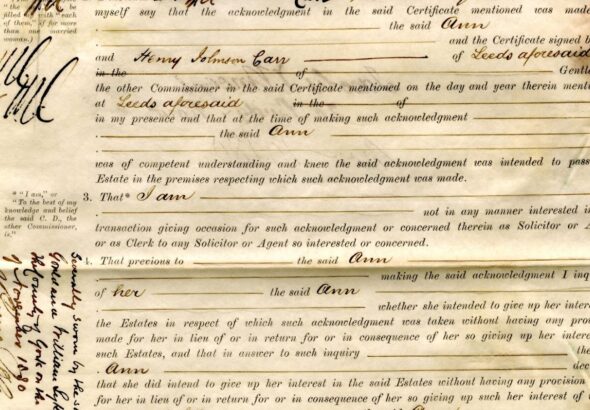 filled in "with each
of them," if for more
than one married
woman.)
myself say that the acknowledgment in the said Certificate mentioned was made
the said Ann
and the Certificate signed b
and Henry Johnson Carr of Leeds aforesaid
in the of Gentle
the other Commissioner in the said Certificate mentioned on the day and year therein mentio
at Leeds aforesaid in the of
in my presence and that at the time of making such acknowledgment
the said Ann
was of competent understanding and knew the said acknowledgment was intended to pass
Estate in the premises respecting which such acknowledgment was made.
* "I am," or
"To the best of my
knowledge and belief
the said C. D., the
other Commissioner,
is."
3. That* I am
not in any manner interested in
transaction giving occasion for such acknowledgment or concerned therein as Solicitor or A
or as Clerk to any Solicitor or Agent so interested or concerned.
4. That previous to the said Ann
making the said acknowledgment I inqu
of her the said Ann
whether she intended to give up her intere
the Estates in respect of which such acknowledgment was taken without having any prov
made for her in lieu of or in return for or in consequence of her so giving up her interes
such Estates, and that in answer to such inquiry the
Ann decl
that she did intend to give up her interest in the said Estates without having any provision
for her in lieu of or in return for or in consequence of her so giving up such her interest of w
Severally sworn by the s
William
the County of York on the
1880